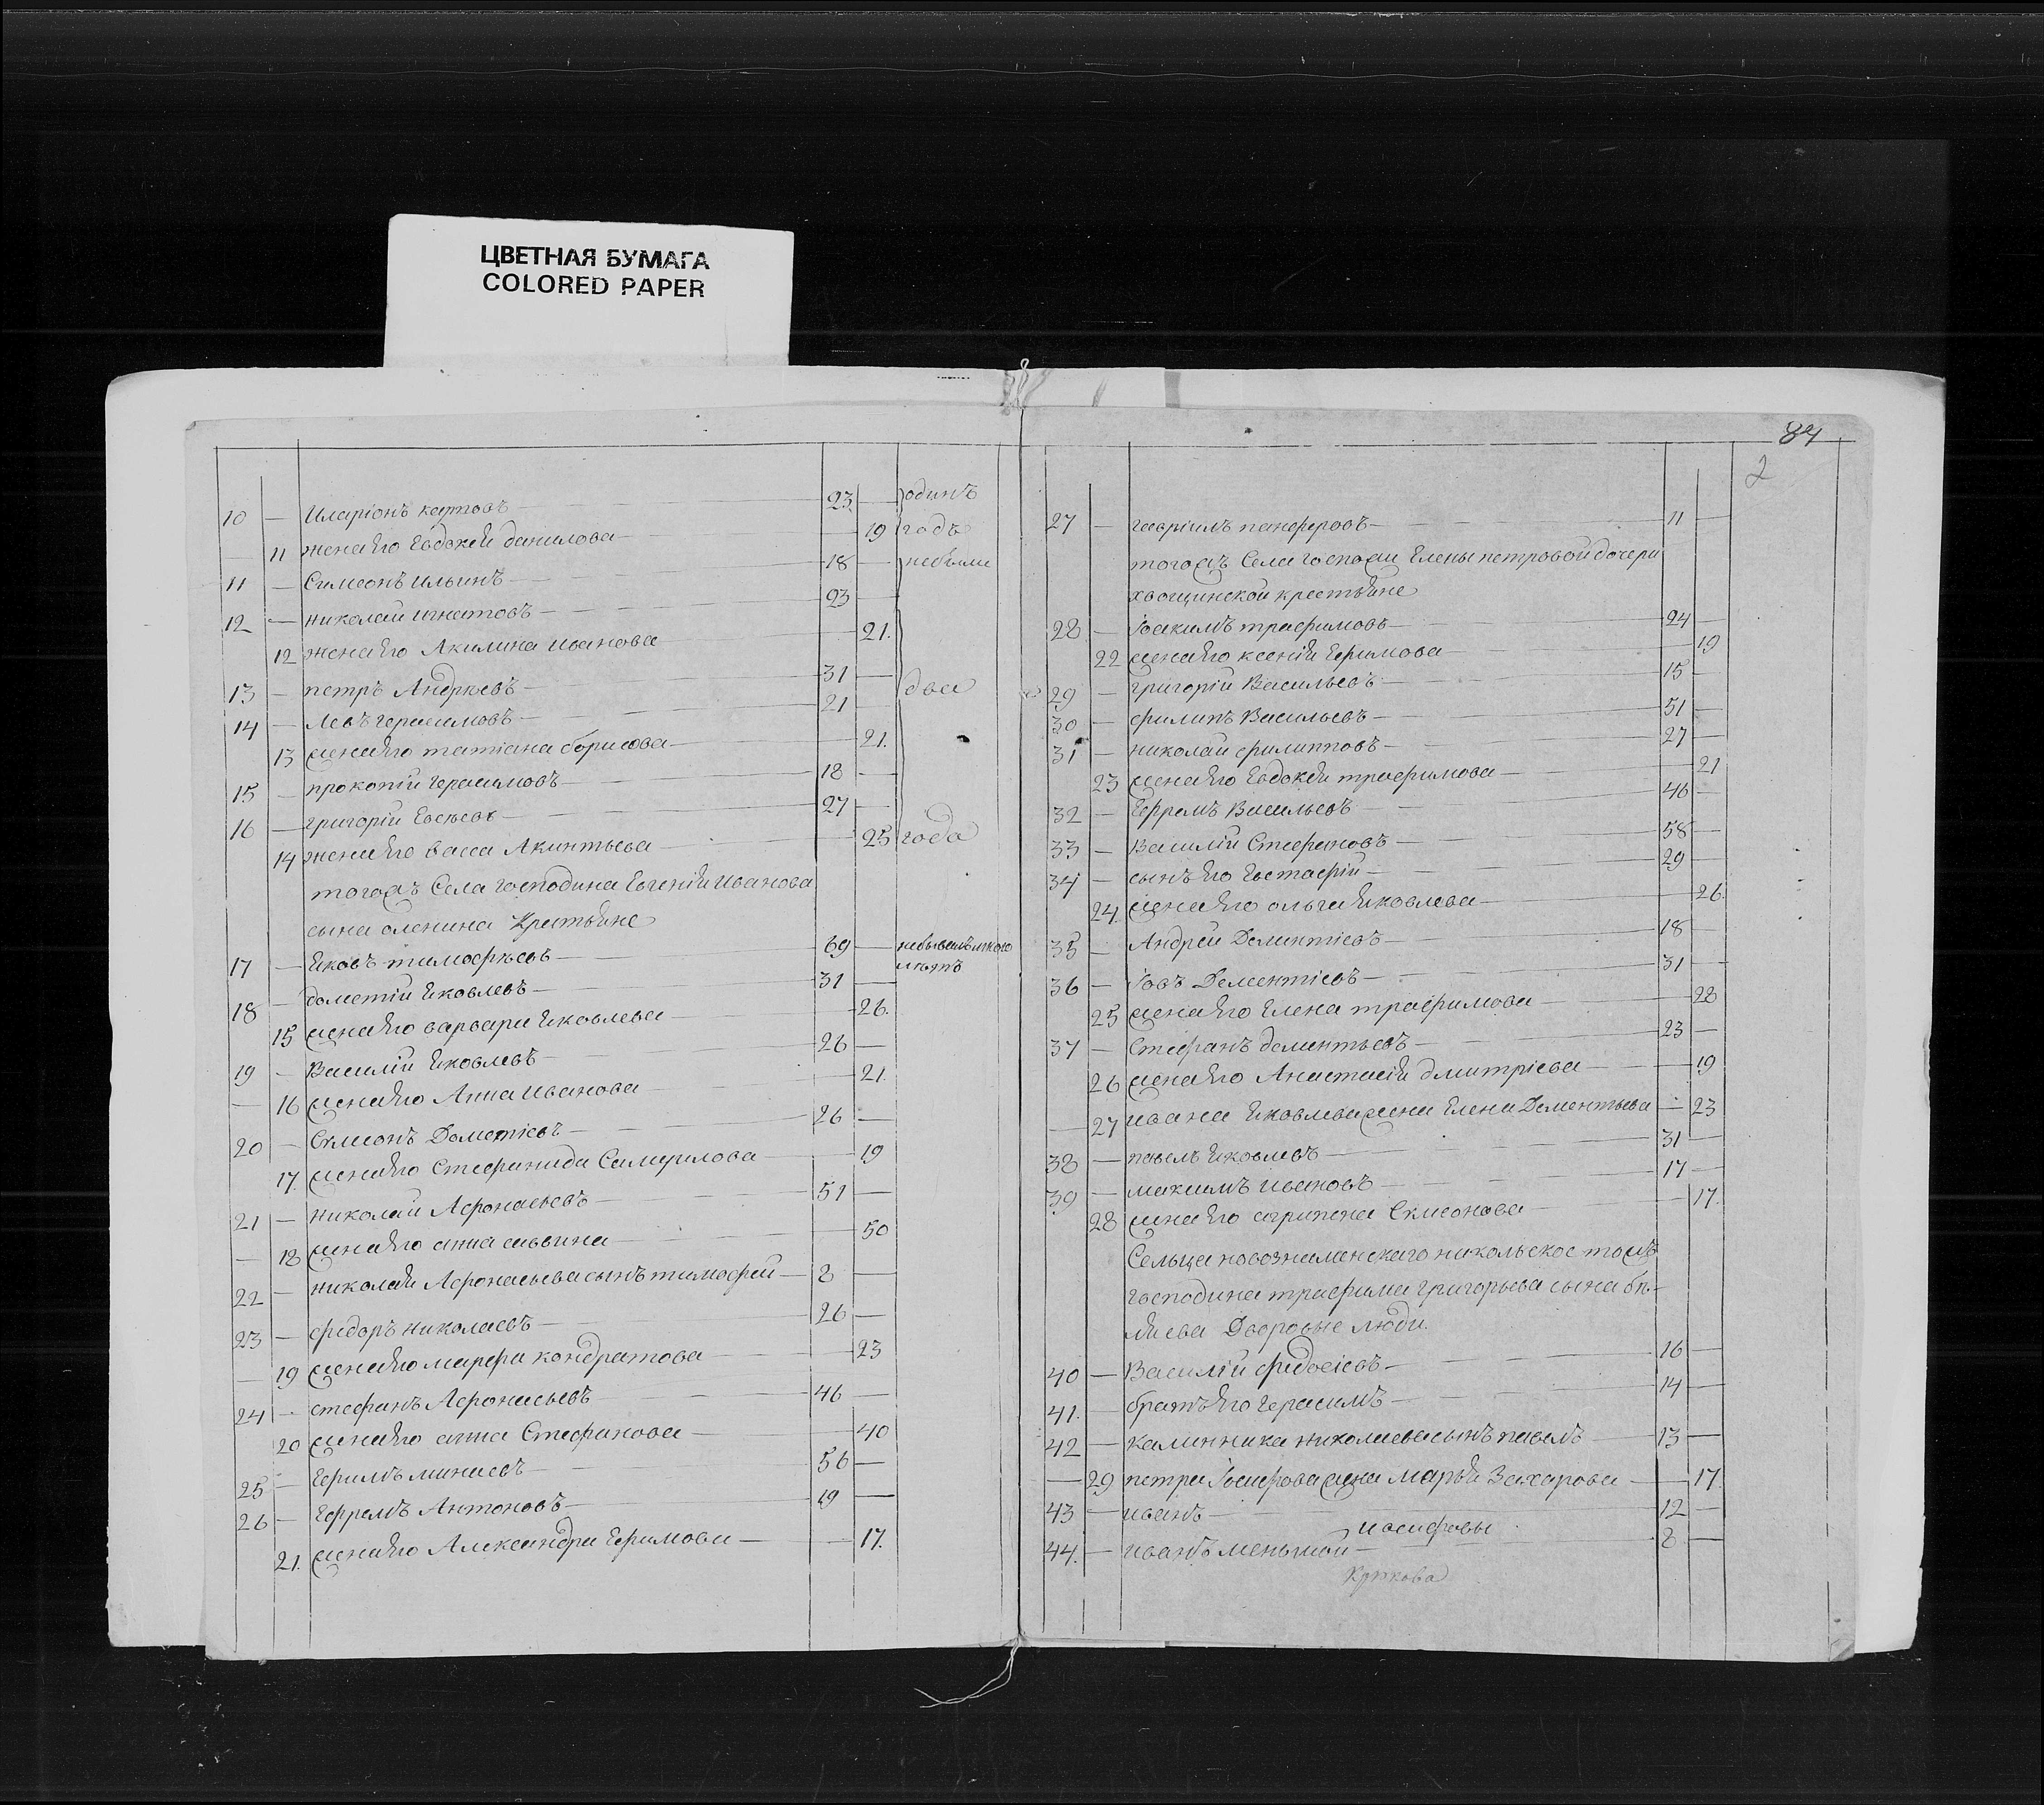 ЦВЕТНАЯ БУМАГА
COLORED PAPER
10 — Иларіонъ карповъ — 23 — одинъ
— 11 жена Его Евдокея данилова — 19 годъ
11 — Симеонъ Ильинъ — 18 — небыли
12 — николай игнатовъ — 23 —
12 жена Его Акилина иванова — 21.
13 — петръ Андреевъ — 31 —
14 — Левъ герасимовъ — 21 — два
13 жена Его татіана борисова — 21.
15 — прокопій герасимовъ — 18 —
16 — григорій Евсѣевъ — 27 —
14 жена Его васса Акинтьева — 25 года
тогожъ Села господина Евгенія иванова
сына оленина Крестьяне
17 — Яковъ тимофѣевъ — 69 — небывалъ много
лѣтъ
18 — дометій Яковлевъ — 31 —
15 жена Его варвара Яковлева — 26.
19 — Василій Яковлевъ — 26 —
— 16 жена Его Анна иванова — 21.
20 — Сѵмеонъ Дометіевъ — 26 —
17. жена Его Стефанида Самуилова — 19
21 — николай Афонасьевъ — 51 —
— 18 жена Его анна саввина — 50
22 — николая Афонасьева сынъ тимофей — 8 —
23 — федоръ николаевъ — 26 —
— 19 жена Его марфа кондратова — 23
24 — стефанъ Афонасьевъ — 46 —
20 жена Его анна Стефанова — 40
25 — Ефимъ минаевъ — 56 —
26 — Ефремъ Антоновъ — 19 —
21. жена Его Александра Ефимова — 17.
84
2
27 — гавріилъ панферовъ — 11 —
тогожъ Села госпожи Елены петровой дочери
хвощинской крестьяне
28 — Іоакимъ трафимовъ — 24 —
22 жена Его ксенія Ефимова — 19
29 — григорій Васильевъ — 15 —
30 — филипъ Васильевъ — 51 —
31 — николай филипповъ — 27 —
23 жена Его Евдокея трафимова — 21
32 — Ефремъ Васильевъ — 46 —
33 — Василій Стефановъ — 58 —
34 — сынъ Его Евстафій — 29 —
24. жена Его ольга Яковлева — 26.
35 — Андрей Дементіевъ — 18 —
36 — Іовъ Дементіевъ — 31 —
25 жена Его Елена трафимова — 28
37 — Стефанъ дементьевъ — 23 —
26 жена Его Анастасія дмитріева — 19
— 27 ивана Яковлева жена Елена Дементьева — 23
38 — павелъ Яковлевъ — 31 —
39 — максимъ ивановъ — 17 —
28 жена Его агрипена Сѵмеонова — 17.
Сельца новознаменскаго никольское тожъ
господина трафима григорьева сына бѣ-
ляева Дворовые люди.
40 — Василій федосіевъ — 16 —
41. — братъ Его герасимъ — 14 —
42 — калинника николаева сынъ павелъ — 13 —
— 29 петра Іосифова жена Марья Захарова — 17.
43 — иванъ — 12 —
иосифовы
44. — иванъ меньшой — 8 —